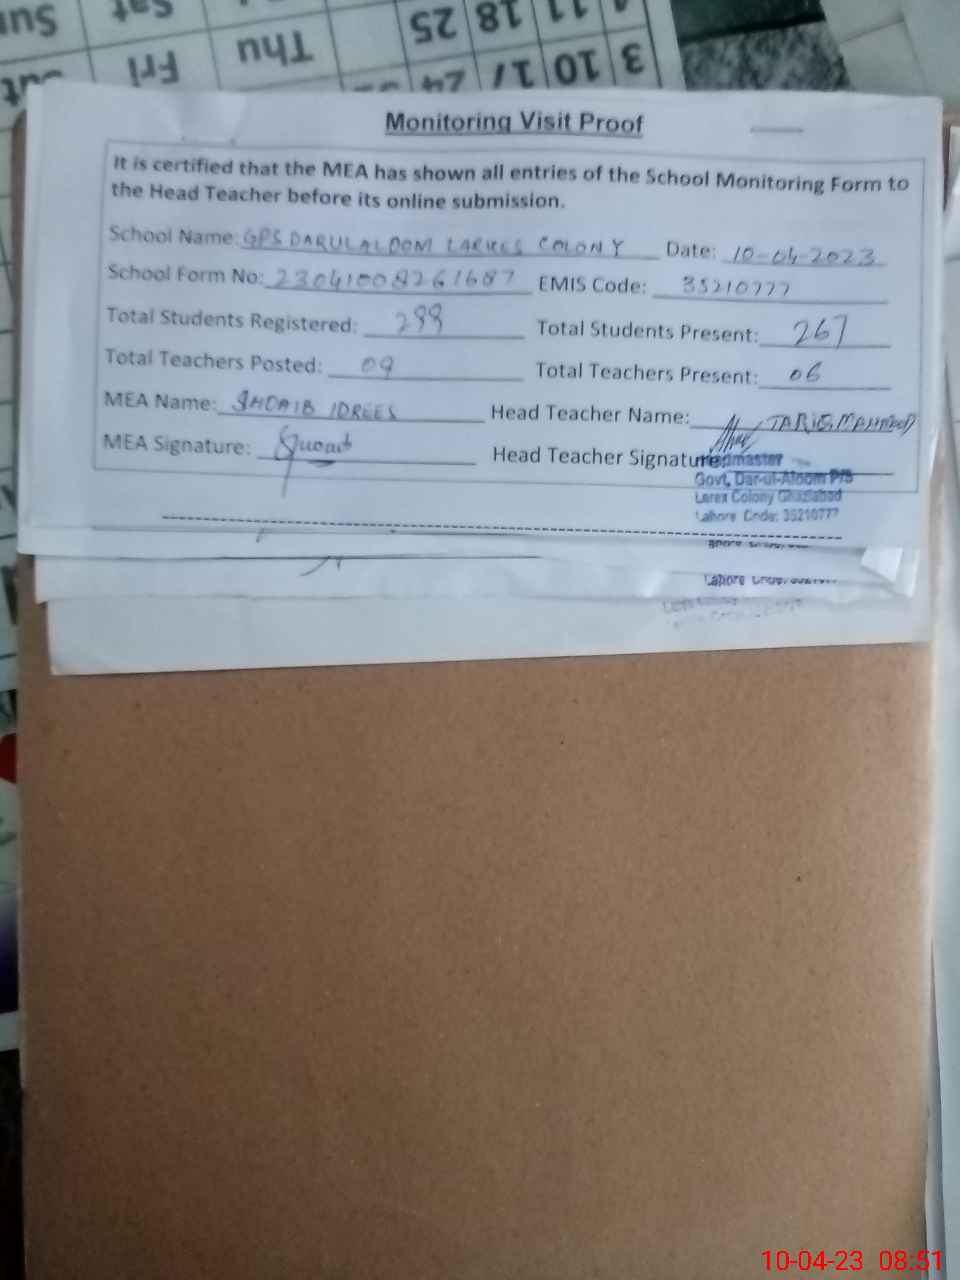 Sun
Sat
Fri
Thu
25
18
11
24
17
10
3
Monitoring Visit Proof
It is certified that the MEA has shown all entries of the School Monitoring Form to
the Head Teacher before its online submission.
School Name: GPS DARULALOOM LARKES COLONY Date: 10-04-2023
School Form No: 23041008261687 EMIS Code: 35210777
Total Students Registered: 299 Total Students Present: 267
Total Teachers Posted: 09 Total Teachers Present: 06
MEA Name: SHOAIB IDREES Head Teacher Name: TARIQ MAHMOOD
MEA Signature: Head Teacher Signature
Headmaster
Govt. Dar-ul-Aloom P/S
Larex Colony Ghaziabad
Lahore Code: 35210777
Lahore
10-04-23 08:51